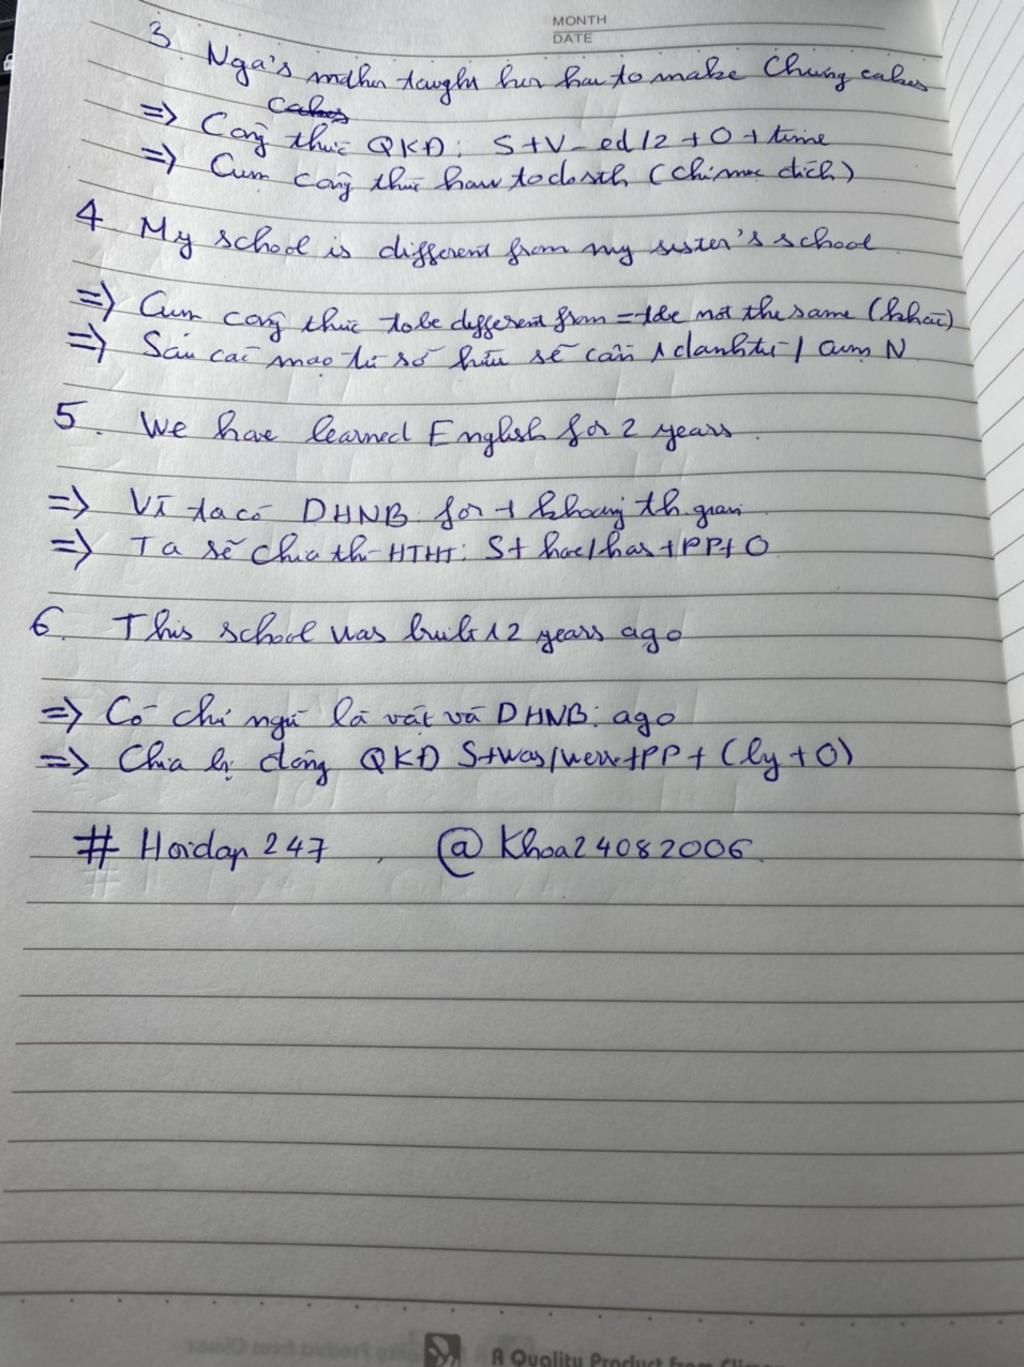 MONTH
DATE
3. Nga's mother taught her how to make Chung cakes
cakes
=> Công thức QKĐ: S+V_ed/2 + O + time
=> Cụm công thức how to do sth (chỉ mục đích)
4. My school is different from my sister's school
=> Cụm công thức tobe different from = tobe not the same (khác)
=> Sau các mạo từ sở hữu sẽ cần 1 danh từ / cụm N
5. We have learned English for 2 years.
=> Vì ta có DHNB for + khoảng th.gian
=> Ta sẽ chia thì HTHT: S+ have/has +PP+ O
6. This school was built 12 years ago
=> Có chủ ngữ là vật và DHNB: ago
=> Chia bị động QKĐ S+was/were+PP + (by + O)
# Hoidap 247 , @Khoa24082006.
A Quality Product from